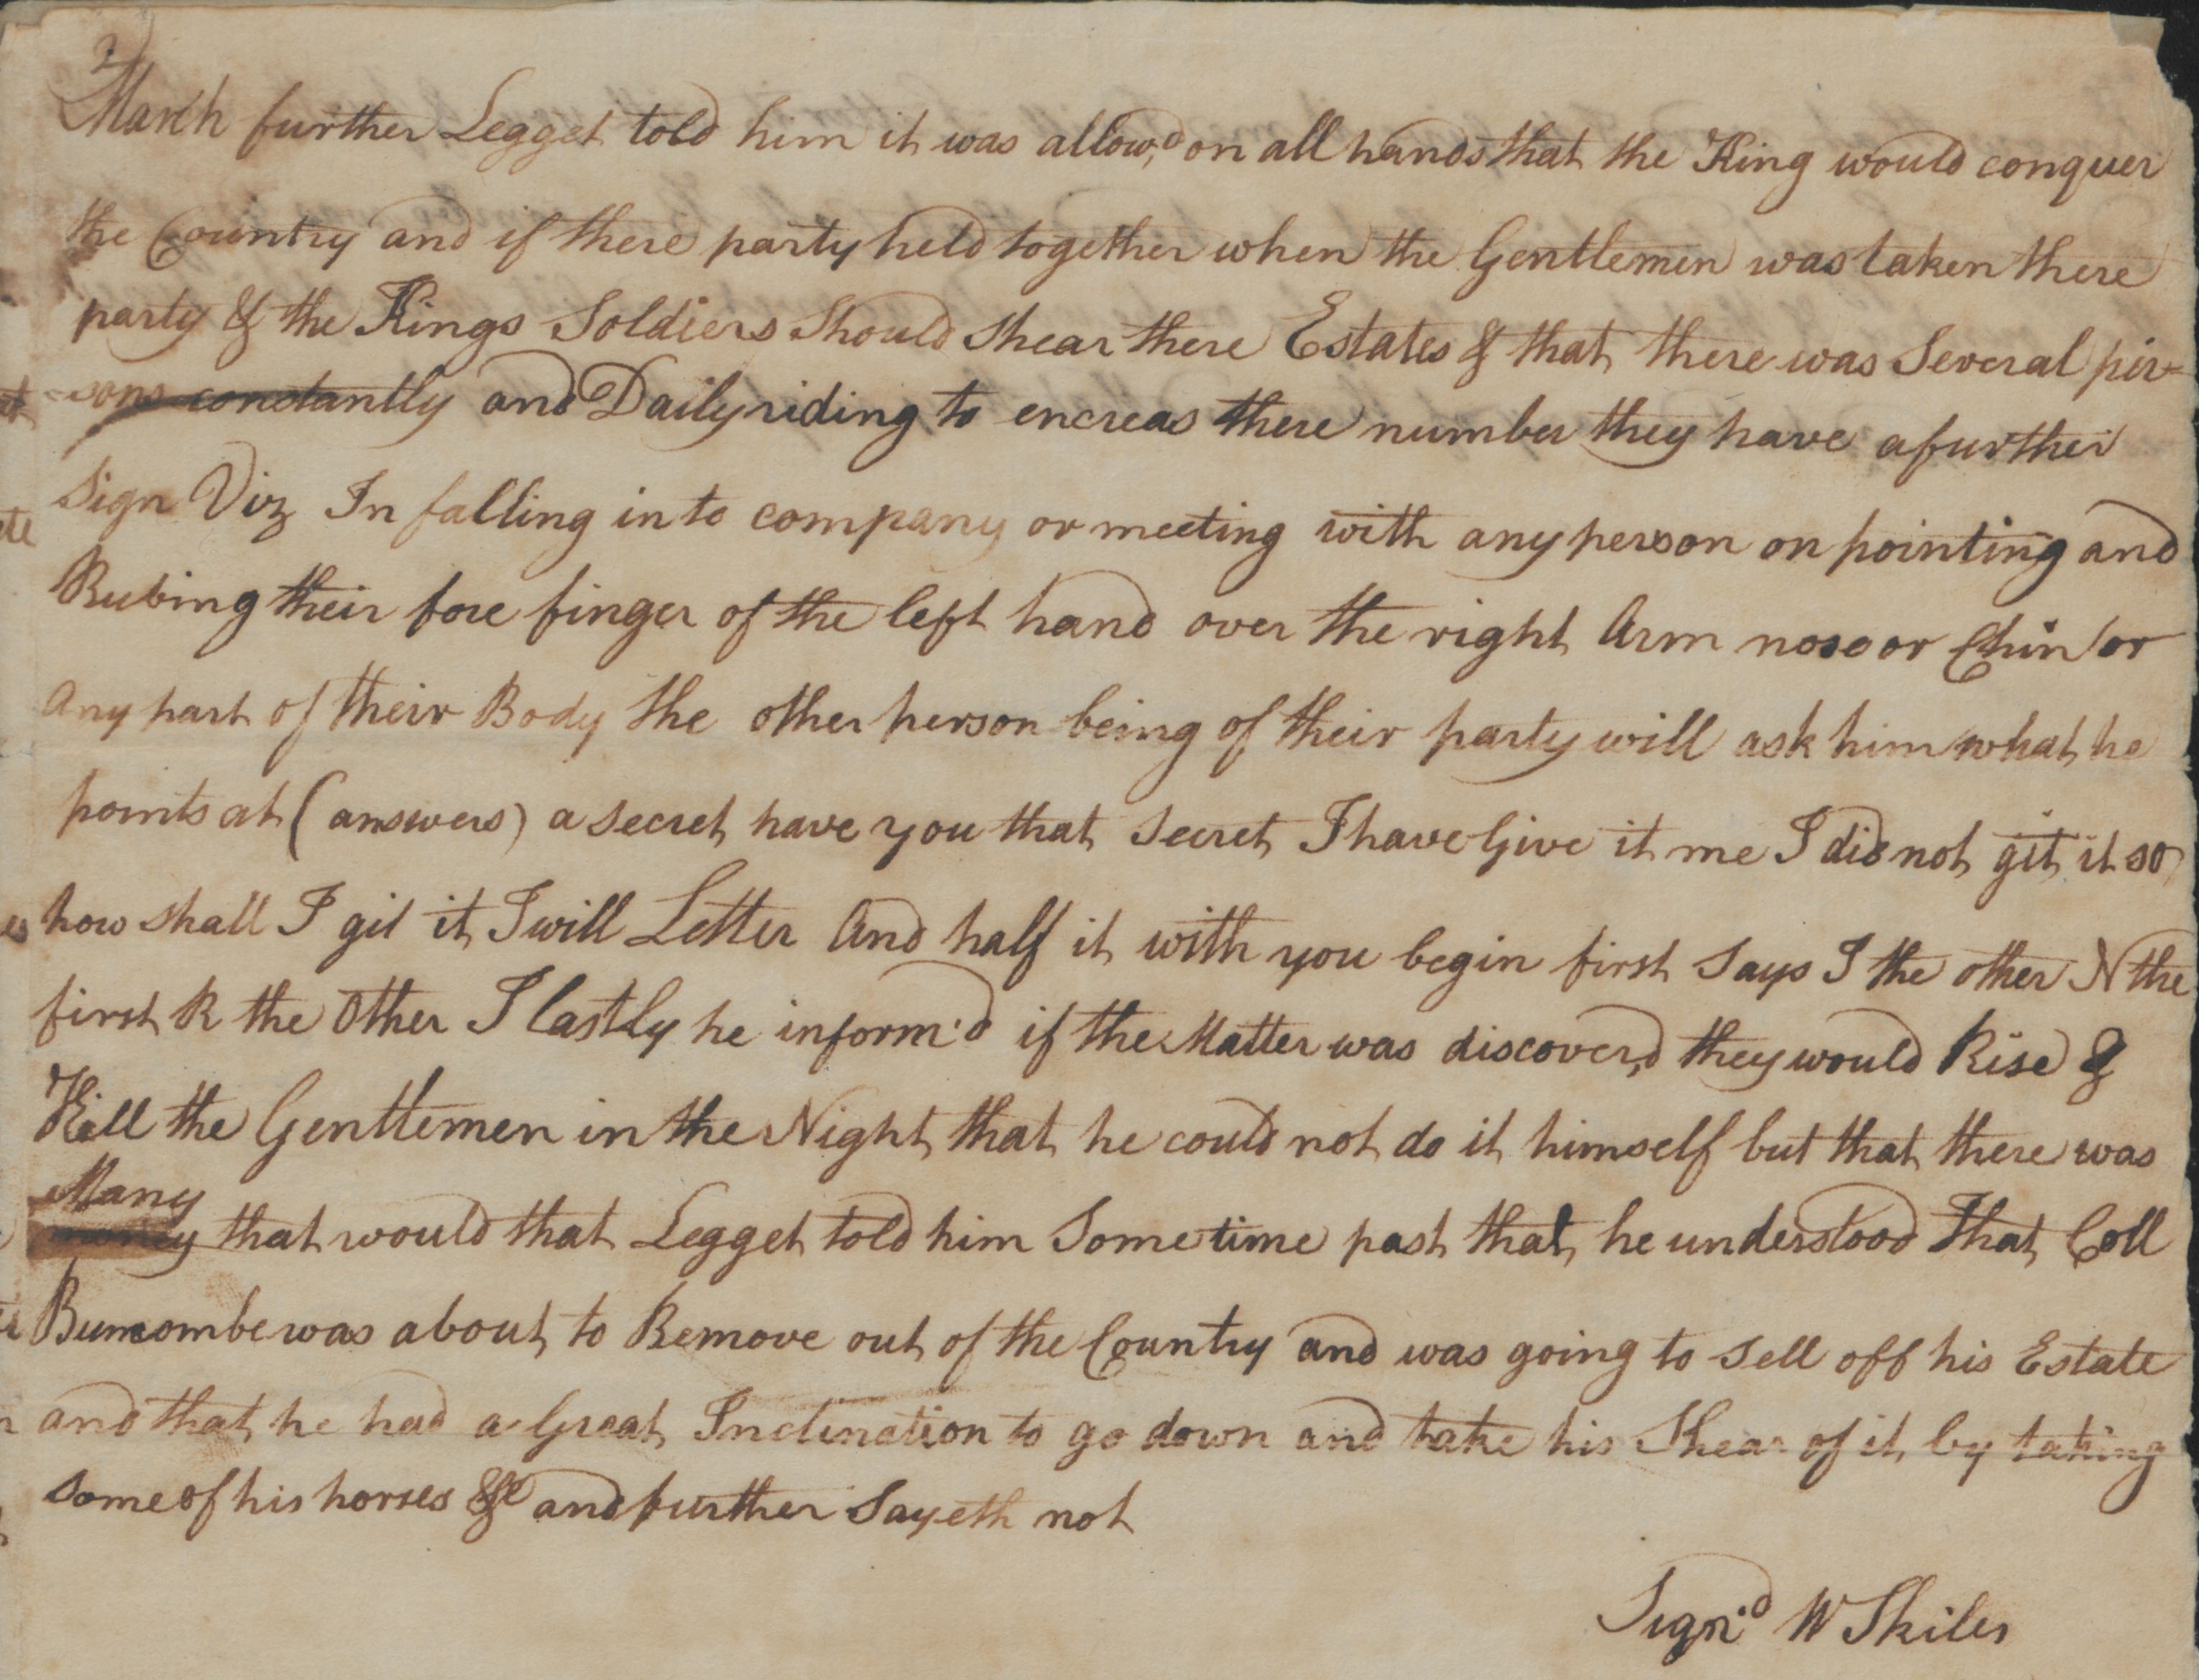 2
March further Legget told him it was allow,d on all hands that the King would conquer
the Country and if there party held together when the Gentlemen was taken there
party & the Kings Soldiers Should Shear there Estates & that there was Several per-
-sons constantly and Daily riding to encreas there number they have a further
Sign Viz In falling in to company or meeting with any person on pointing and
Rubing their fore finger of the left hand over the right Arm nose or Chin or
Any part of their Body the other person being of their party will ask him what he
points at (answers) a secret have you that Secret I have Give it me I did not git it so
how shall I git it I will Letter And half it with you begin first Says I the other N the
first R the Other I lastly he inform'd if the Matter was discover,d they would Rise &
Kill the Gentlemen in the Night that he could not do it himself but that there was
Many
that would that Legget told him Some time past that he understood That Coll
Buncombe was about to Remove out of the Country and was going to Sell off his Estate
and that he had a Great Inclination to go down and take his Shear of it by taking
Some of his horses &c and further Sayeth not
Sign'd W Skiles